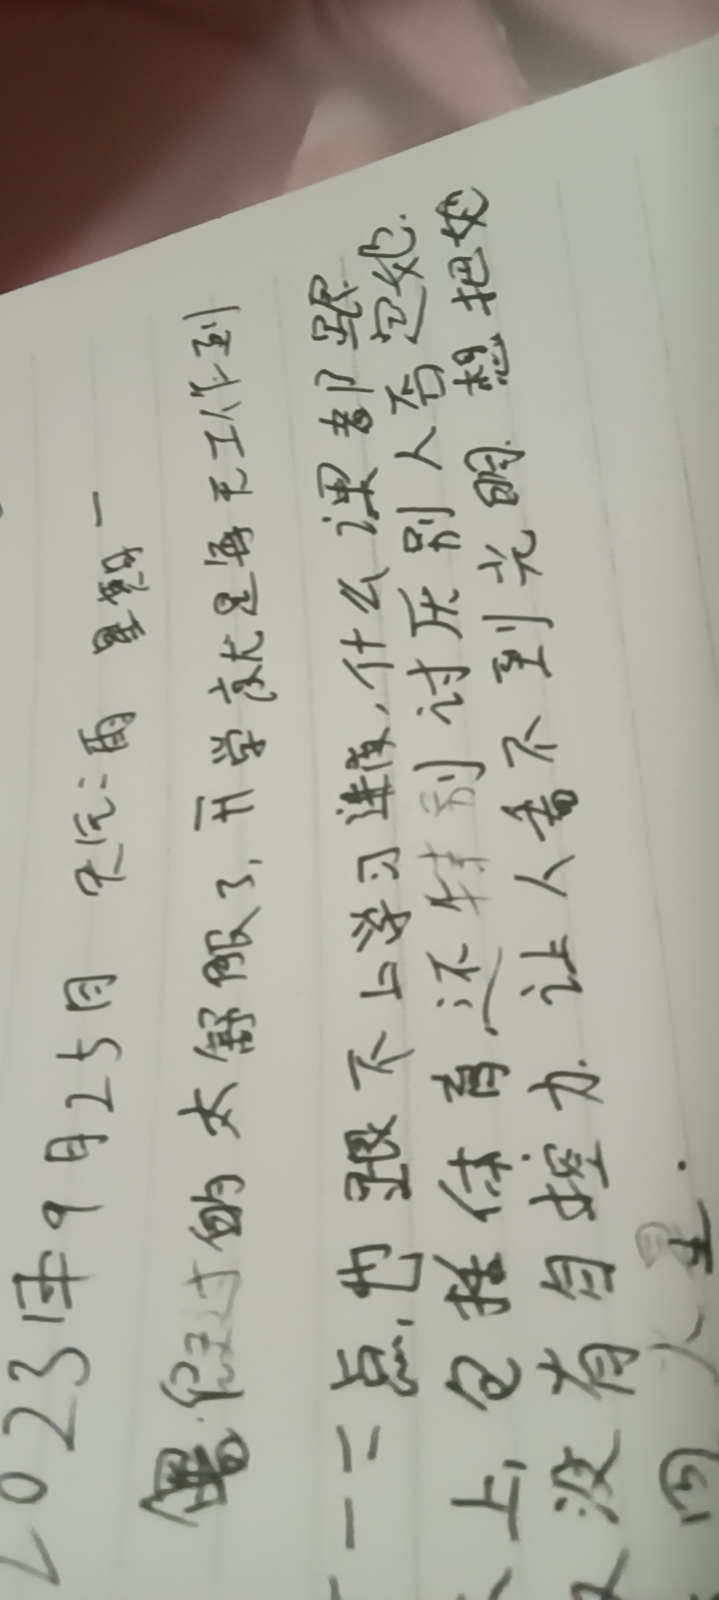 2023年9月25日 天气:雨 星期一
暑假过的太舒服了,开学就是每天工作到
一二点,也跟不上学习进度,什么课都跟
上,包括体育,还特别讨厌别人否定她.
又没有自控力 让人看不到光明.想把她
回火星.